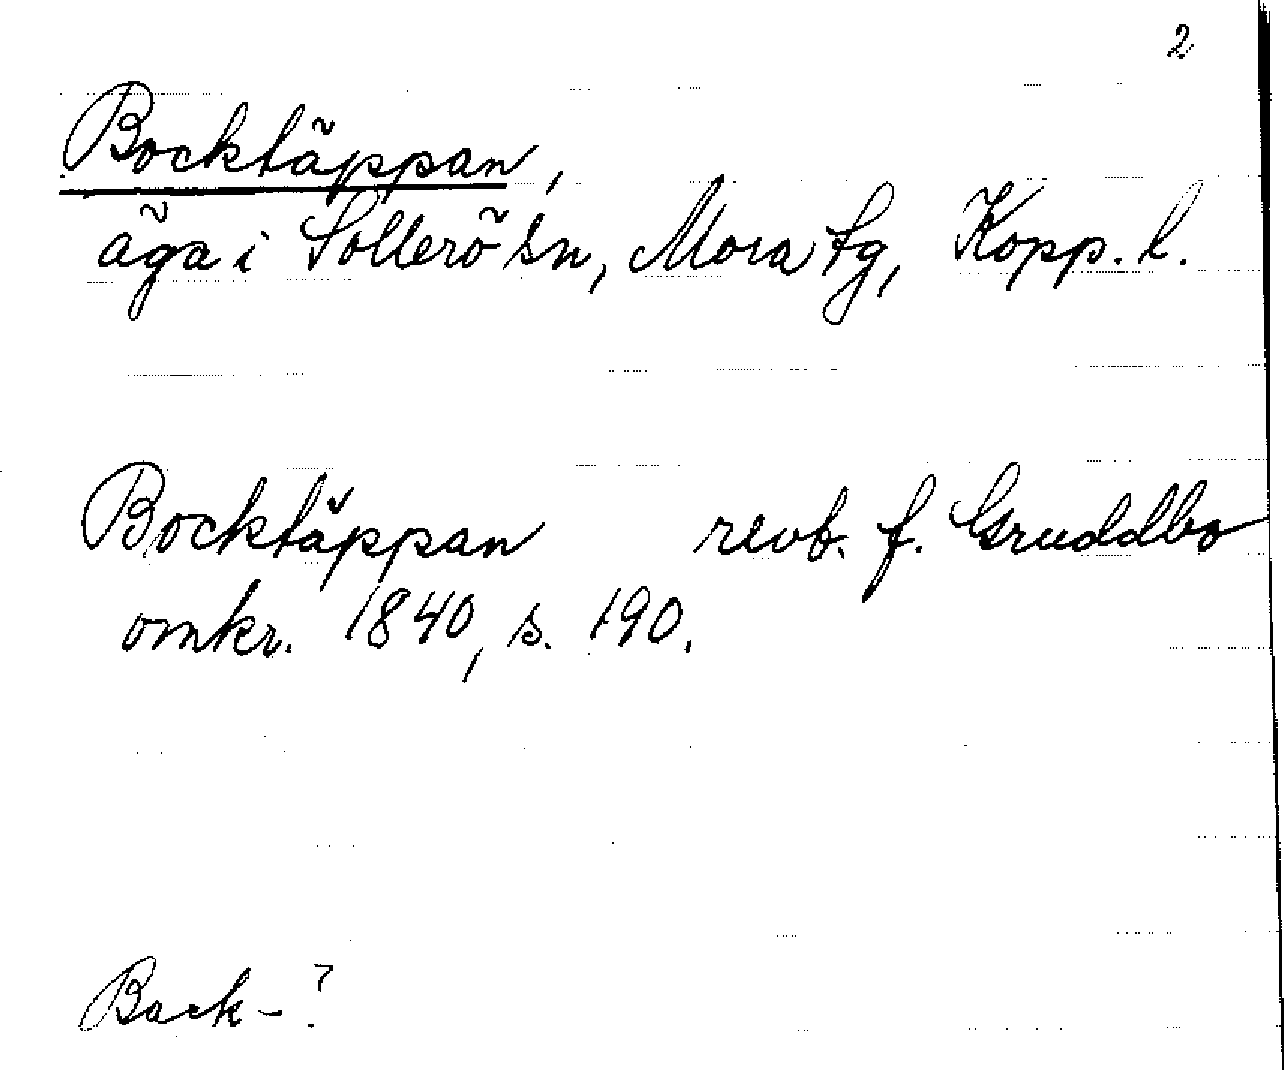 2
Bocktäppan,
äga i Sollerö sn, Mora tg, Kopp. l.
Bocktäppan revb. f. Gruddbo
omkr. 1840, s. 190.
Back-?